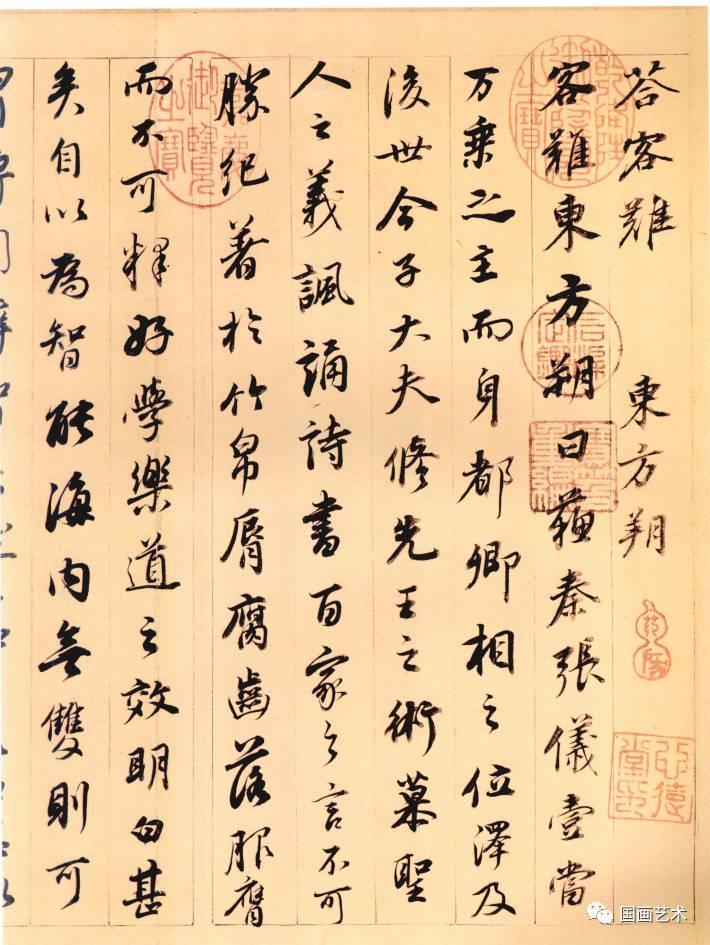 荅客難 東方朔
客難東方朔曰蘇秦張儀壹當
万乗之主而身都卿相之位澤及
後世今子大夫修先王之術慕聖
人之義諷誦詩書百家之言不可
勝紀著於竹帛脣腐齒落服膺
而不可釋好學樂道之效明白甚
矣自以為智能海内無雙則可
御覽之寶
国画艺术